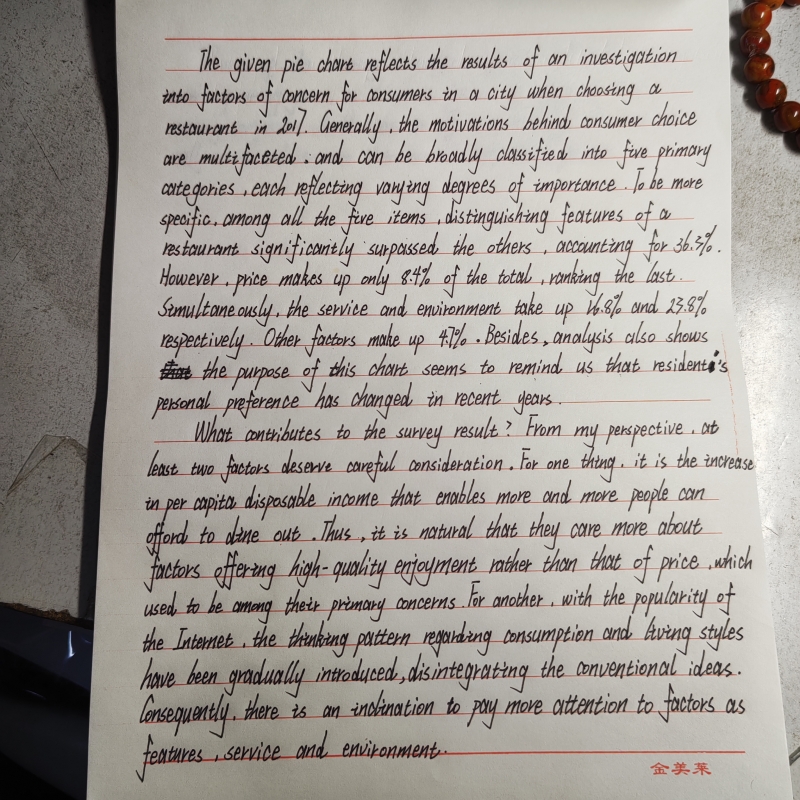 The given pie chart reflects the results of an investigation
into factors of concern for consumers in a city when choosing a
restaurant in 2017. Generally, the motivations behind consumer choice
are multifaceted, and can be broadly classified into five primary
categories, each reflecting varying degrees of importance. To be more
specific, among all the five items, distinguishing features of a
restaurant significantly surpassed the others, accounting for 36.3%.
However, price makes up only 8.4% of the total, ranking the last.
Simultaneously, the service and environment take up 16.8% and 23.8%
respectively. Other factors make up 4.7%. Besides, analysis also shows
the purpose of this chart seems to remind us that resident's
personal preference has changed in recent years.
What contributes to the survey result? From my perspective, at
least two factors deserve careful consideration. For one thing, it is the increase
in per capita disposable income that enables more and more people can
afford to dine out. Thus, it is natural that they care more about
factors offering high-quality enjoyment rather than that of price, which
used to be among their primary concerns. For another, with the popularity of
the Internet, the thinking pattern regarding consumption and living styles
have been gradually introduced, disintegrating the conventional ideas.
Consequently, there is an inclination to pay more attention to factors as
features, service and environment.
金美莱